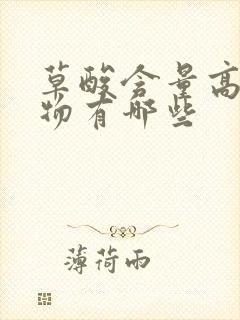 草酸含量高
物有哪些
薄荷雨